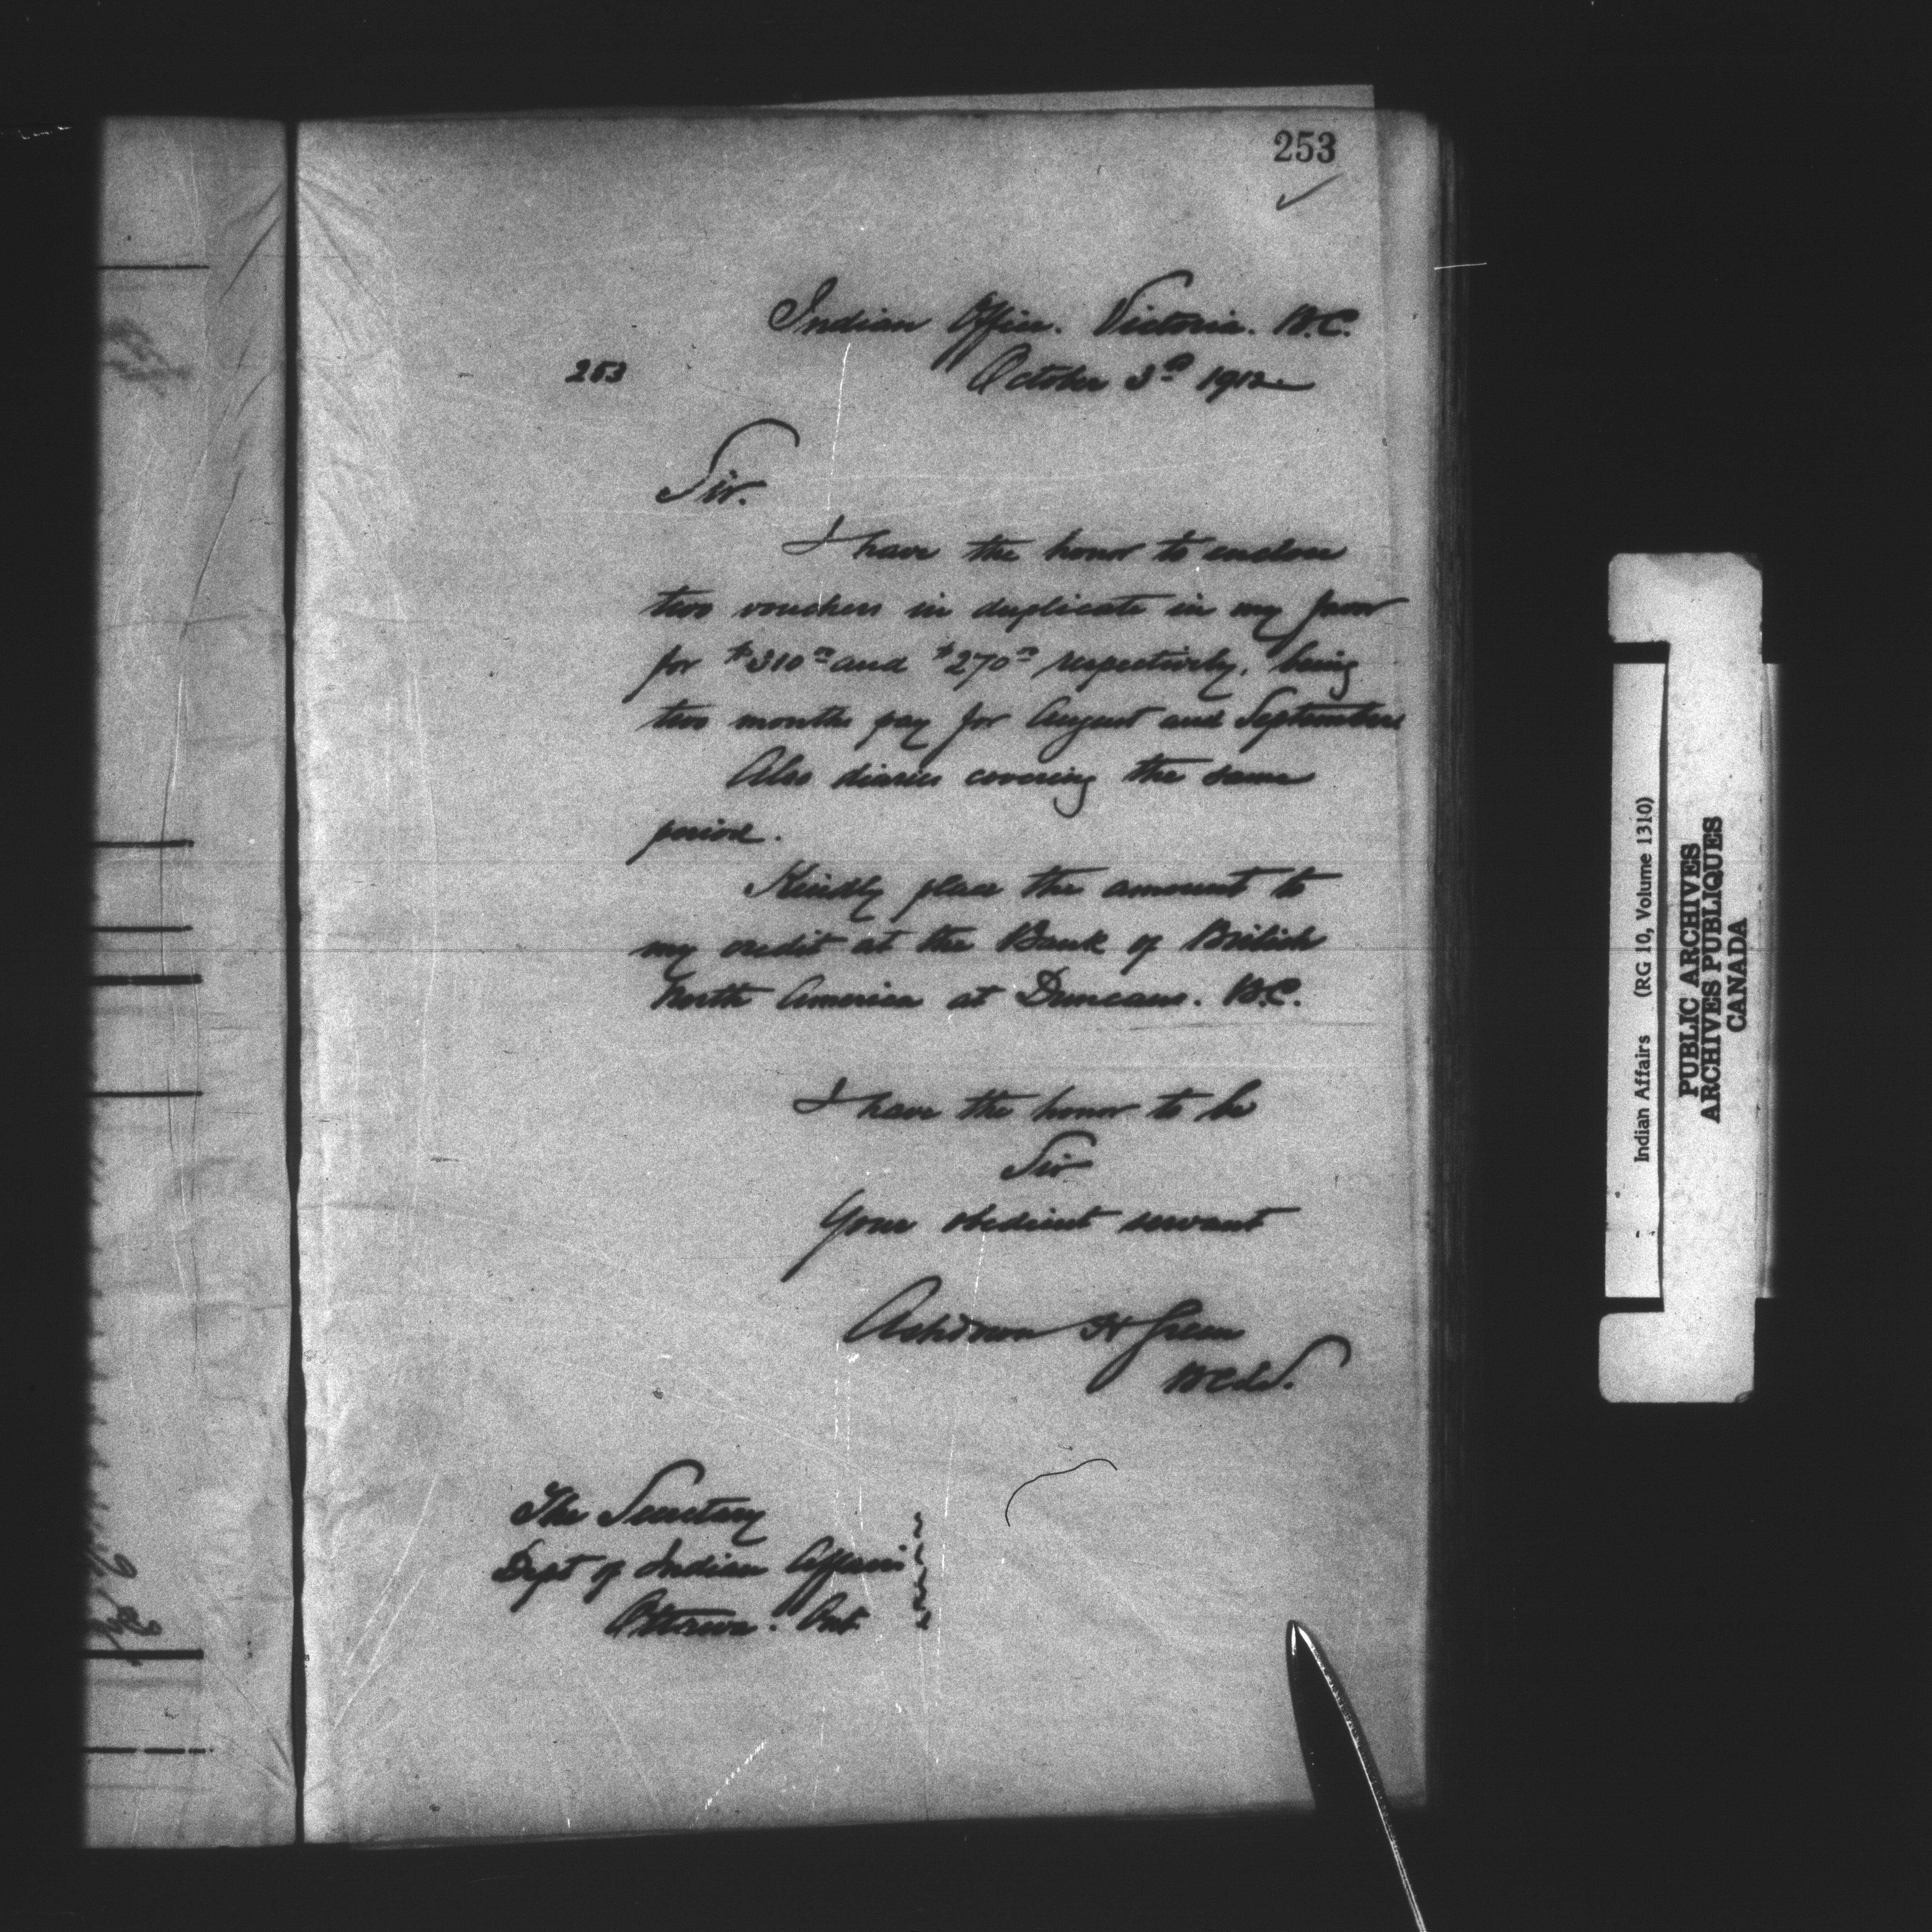 253
Indian Office. Victoria. B.C.
253
October 3rd 1912
Sir.
I have the honor to enclose
two vouchers in duplicate in my favor
for $310 00 and $270 00 respectively, being
two months pay for August and September
Also diaries covering the same
period.
Kindly place the amount to
my credit at the Bank of British
North America at Duncans. B.C.
I have the honor to be
Sir
Your obedient servant
Ashdown H Green
BCLS.
The Secretary
Dept of Indian Affairs
Ottawa. Ont.
Indian Affairs (RG 10, Volume 1310)
PUBLIC ARCHIVES
ARCHIVES PUBLIQUES
CANADA